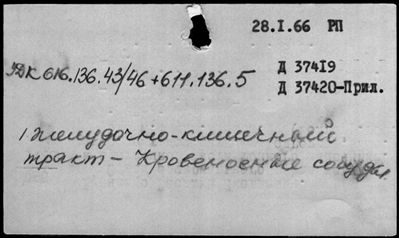 28.I.66 РП
УДК 616.136.43/46+611.136.5
Д 37419
Д 37420-Прил.
1 Желудочно-кишечный
тракт - Кровеносные сосуды